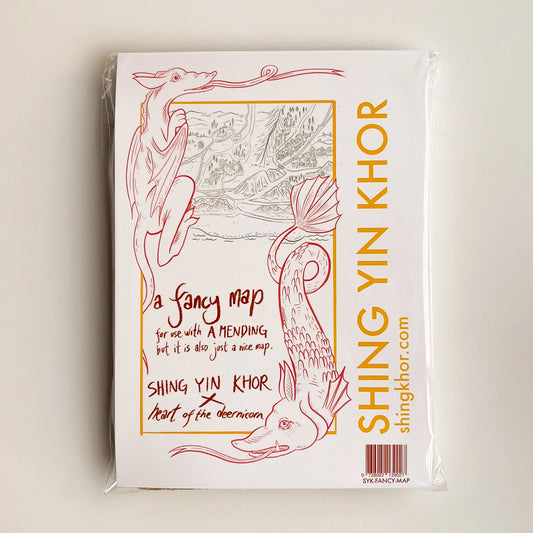 a fancy map
for use with A MENDING
but it is also just a nice map.
SHING YIN KHOR
X
heart of the deernicorn
SHING YIN KHOR
shingkhor.com
SYK-FANCY-MAP